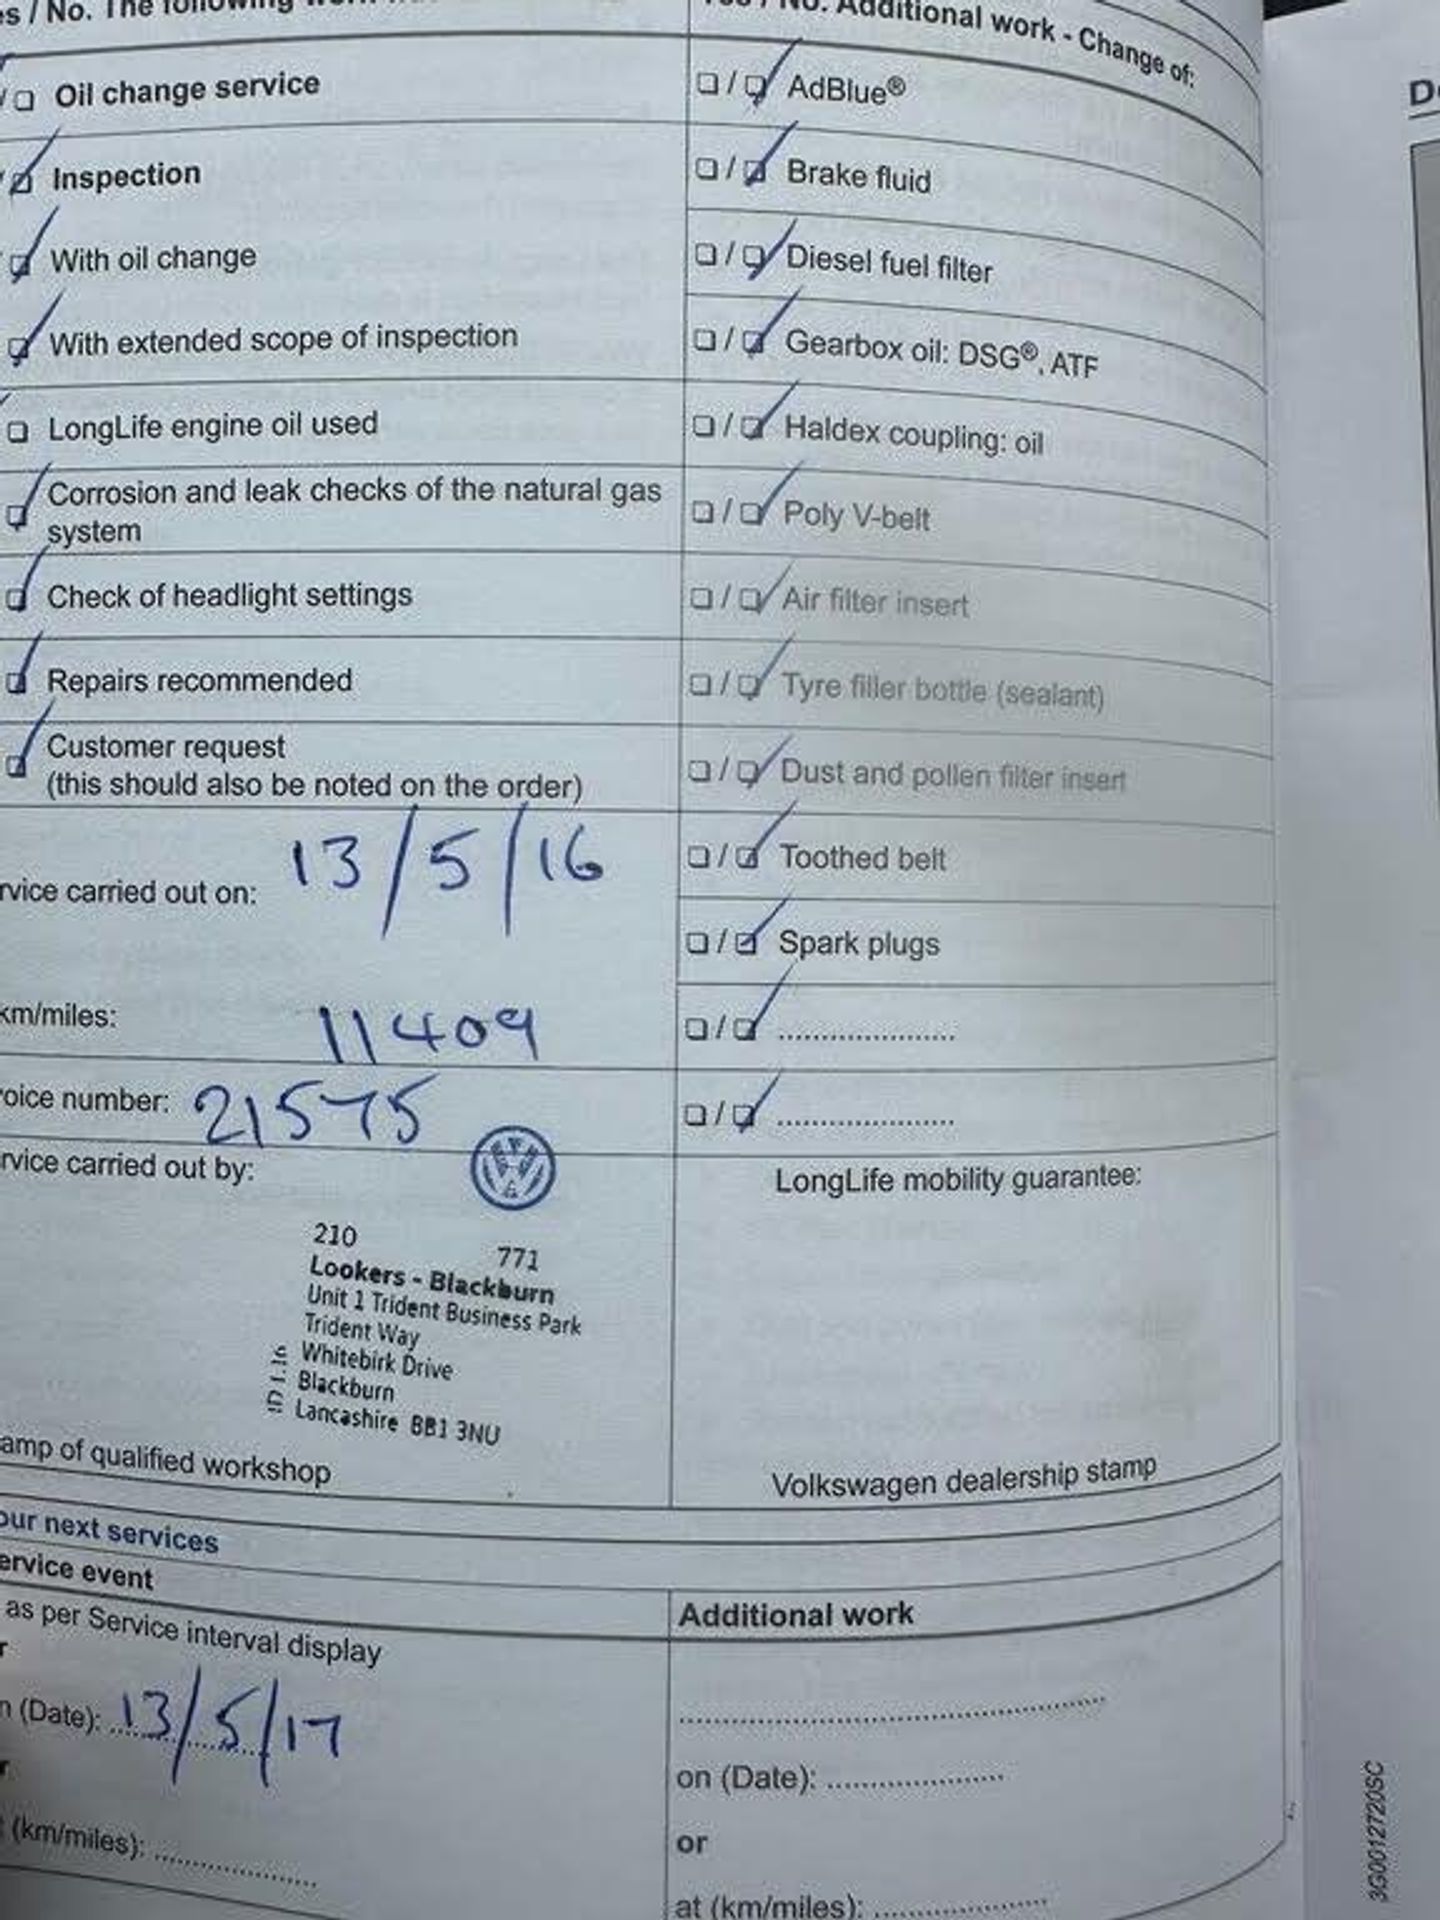 es / No. The following
/ ❏ Oil change service
/ ❏ Inspection
❏ With oil change
❏ With extended scope of inspection
❏ LongLife engine oil used
❏ Corrosion and leak checks of the natural gas
system
❏ Check of headlight settings
❏ Repairs recommended
❏ Customer request
(this should also be noted on the order)
rvice carried out on: 13/5/16
km/miles: 11409
oice number: 21575
rvice carried out by:
210 771
Lookers - Blackburn
Unit 1 Trident Business Park
Trident Way
Whitebirk Drive
Blackburn
Lancashire BB1 3NU
amp of qualified workshop
No. Additional work - Change of:
❏ / ❏ AdBlue®
❏ / ❏ Brake fluid
❏ / ❏ Diesel fuel filter
❏ / ❏ Gearbox oil: DSG®, ATF
❏ / ❏ Haldex coupling: oil
❏ / ❏ Poly V-belt
❏ / ❏ Air filter insert
❏ / ❏ Tyre filler bottle (sealant)
❏ / ❏ Dust and pollen filter insert
❏ / ❏ Toothed belt
❏ / ❏ Spark plugs
❏ / ❏ .....................
❏ / ❏ .....................
LongLife mobility guarantee:
Volkswagen dealership stamp
our next services
ervice event
as per Service interval display
r
n (Date): 13/5/17
r
t (km/miles): ....................
Additional work
..................................................
on (Date): .....................
or
at (km/miles): .....................
3G0012720SC
D